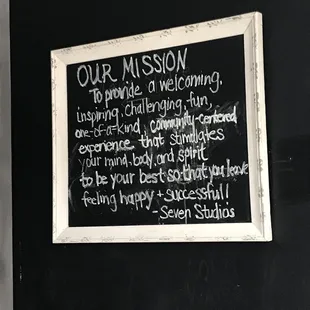 OUR MISSION
To provide a welcoming,
inspiring, challenging, fun,
one-of-a-kind, community-centered
experience that stimulates
your mind, body, and spirit
to be your best so that you leave
feeling happy + successful!
- Seven Studios